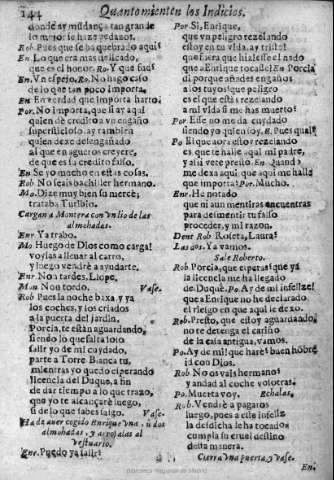 144 Quanto mienten los Indicios.
donde ay mudança tan grande
lo mejor se haze pedaços.
Rob. Pues que se ha quebrado aqui?
En. Lo que era mas delicado,
que es el honor. Ro. Y que fue?
En. Vn espejo. Ro. No hago caso
de lo que tan poco importa.
En. En verdad que importa harto.
Por. No importa, que si ay aqui
quien dè credito a vn engaño
supersticioso, ay tambien
quien dexe desengañado
al que en agueros creyere,
de que es su credito falso.
En. Se yo mucho en estas cosas.
Rob. No seais bachiller hermano.
Mo. Dize muy bien su merced;
trabaxa Turibio.
Cargan a Montera con vn lio de las
almohadas.
Enr. Ya trabo.
Mo Huego de Dios como carga!
voylas a llevar al carro,
y luego vendrè a ayudarte.
Enr. No a tardes, Llope,
Mon Non tordo. Vase.
Rob Pues la noche baxa, y ya
los coches, y los criados
a la puerta del jardin,
Porcia, te estàn aguardando,
siendo lo que falta solo
salir yo de mi cuydado,
parte a Torre Blanca tu,
mientras yo quedo esperando
licencia del Duque, a fin
de dar tiempo a lo que trazo,
que yo te alcançarè luego,
si de lo que sabes salgo. Vase.
Ha de aver cogido Enrique vna, ù dos
almohadas, y arrojalas al
vestuario.
Enr. Puedo ya salir?
Por Si, Enrique,
que vn peligro rezelando
estoy en tu vida, ay triste!
que fuera que hizieste el hado
que a Enrique tocasse! En Porcia
di porque añades engaños
a los tuyos? que peligro
es el que estàs rezelando
a mi vida si me has muerto?
Por Esse no me da cuydado
siendo yo quien soy. E. Pues qual?
Po El que aora estoy rezelando
es que te halle aqui mi padre,
y assi vete presto. En Quando
me dexa aqui, que aqui me halle
que importa? Por. Mucho.
Enr. He notado
que ni aun mientiras encuentras
para desmentir tu falso
proceder, y mi razon.
Dent Rob Roseta, Laura!
Las dos. Ya vamos.
Sale Roberto.
Rob. Porcia, que esperas? que ya
la licencia me ha llegado
del Duque. Po. Ay de mi infelize!
que a Enrique no he declarado
el riesgo en que aqui le dexo.
Rob. Presto, que estoy aguardando,
no te detenga el cariño
de la casa antigua, vamos.
Po. Ay de mi! que harè? buen hōbre
id con Dios.
Rob. No os vais hermano!
y andad al coche vosotras.
Po. Muerta voy. Echalas,
Rob. Vendrè a pagaros
luego, pues a este infeliz
la desdicha le ha tocado
cumpla su cruel destino
desta manera.
Cierra vna puerta, y vase.
En.
Biblioteca Regional de Madrid